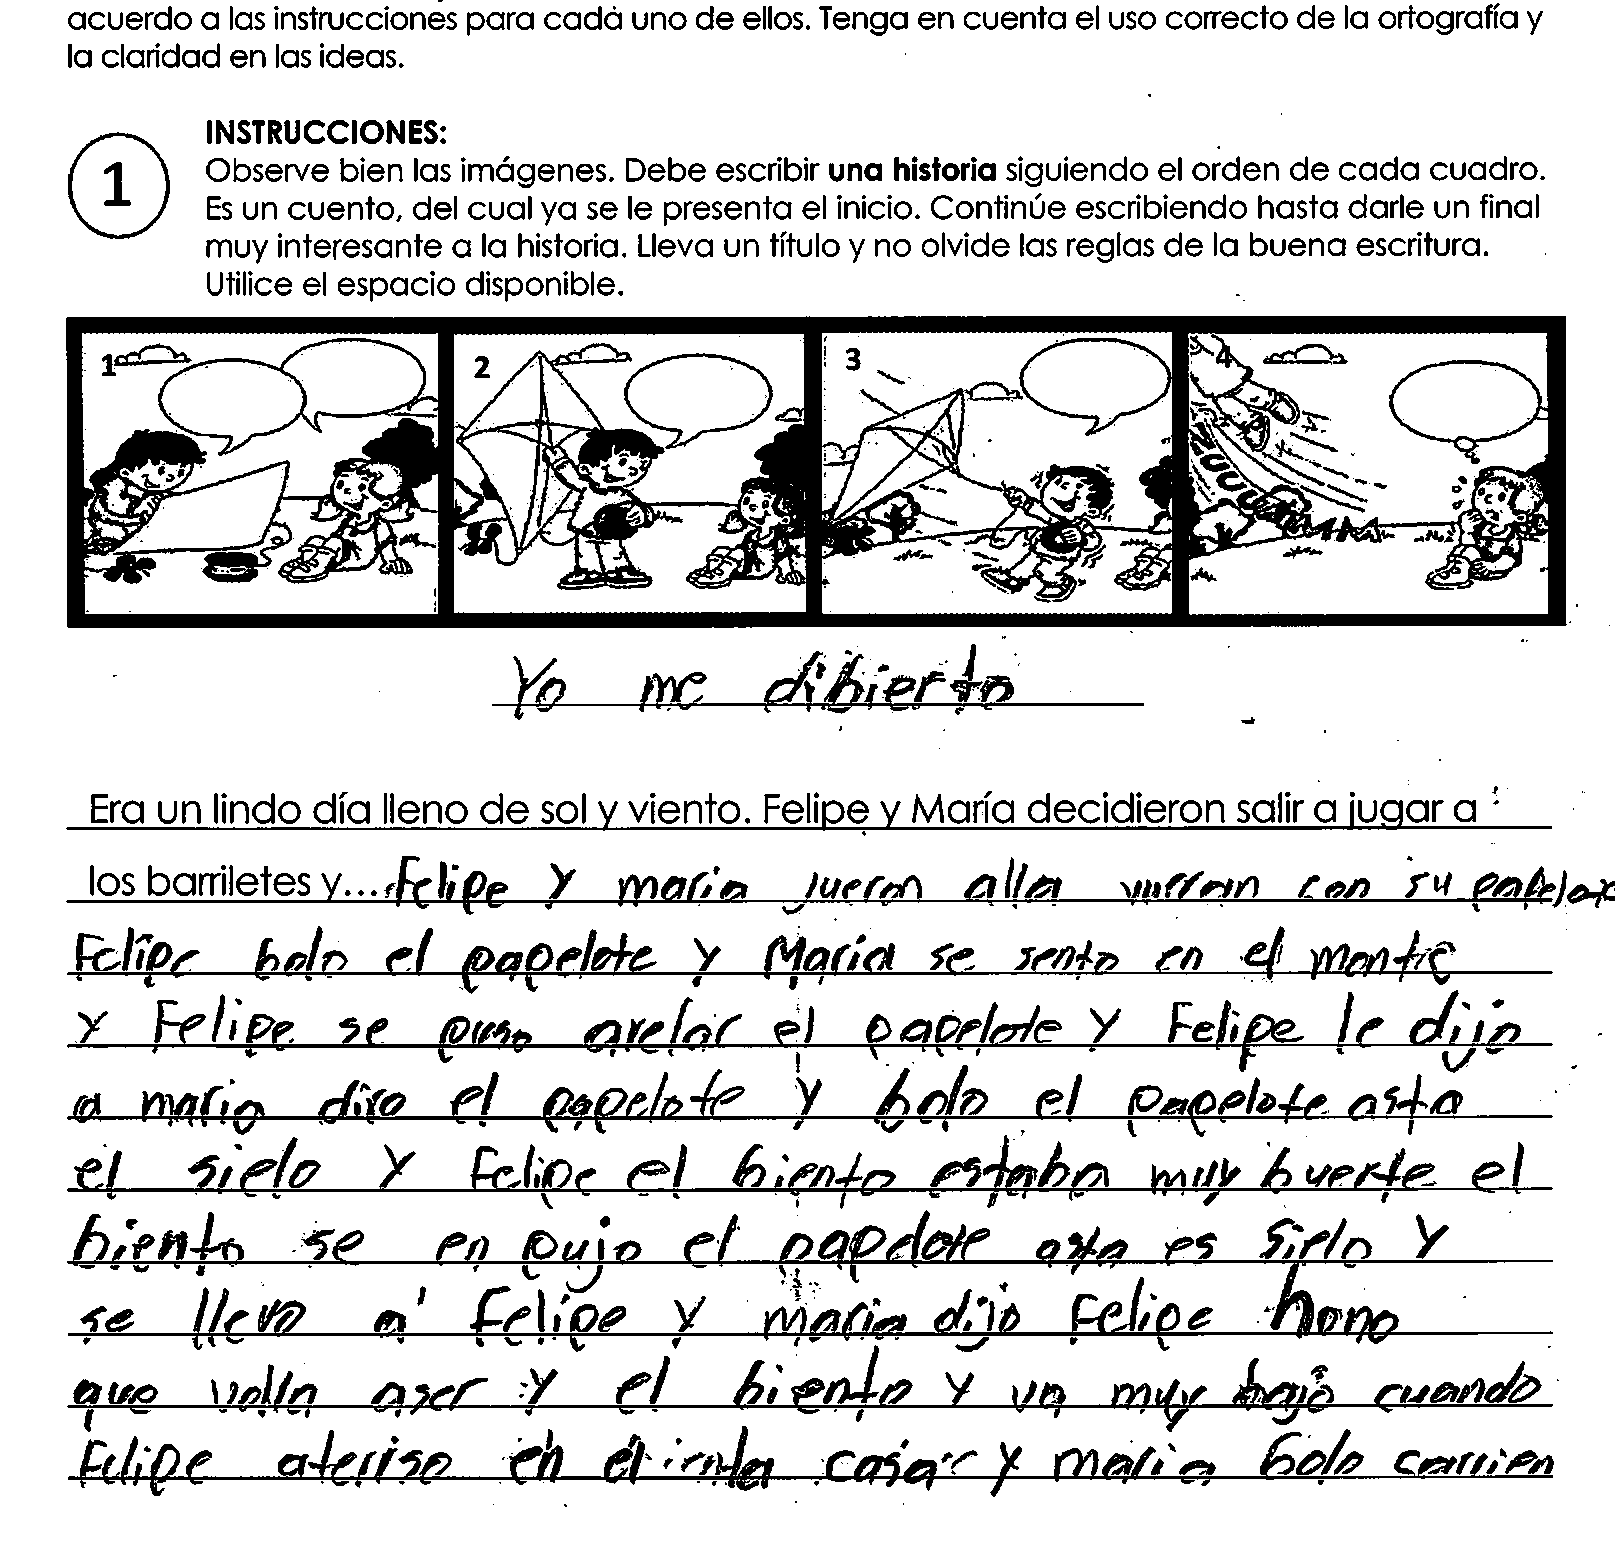 acuerdo a las instrucciones para cada uno de ellos. Tenga en cuenta el uso correcto de la ortografía y
la claridad en las ideas.
1
INSTRUCCIONES:
Observe bien las imágenes. Debe escribir una historia siguiendo el orden de cada cuadro.
Es un cuento, del cual ya se le presenta el inicio. Continúe escribiendo hasta darle un final
muy interesante a la historia. Lleva un título y no olvide las reglas de la buena escritura.
Utilice el espacio disponible.
1 2 3 4
Yo me dibierto
Era un lindo día lleno de sol y viento. Felipe y María decidieron salir a jugar a
los barriletes y... Felipe y maria jueron alla con su
Felipe bolo el papelote y Maria se sento en el monte
y Felipe se puso avelar el papelote y Felipe le dijo
a maria diro el papelote y bolo el papelote asta
el sielo y Felipe el biento estaba muy buerte el
biento se en pujo el papelote asta es sielo y
se llevo a Felipe y maria dijo Felipe hono
que volla aser y el biento y va muy bajo cuando
Felipe aterriso en casa y maria bolo corrien